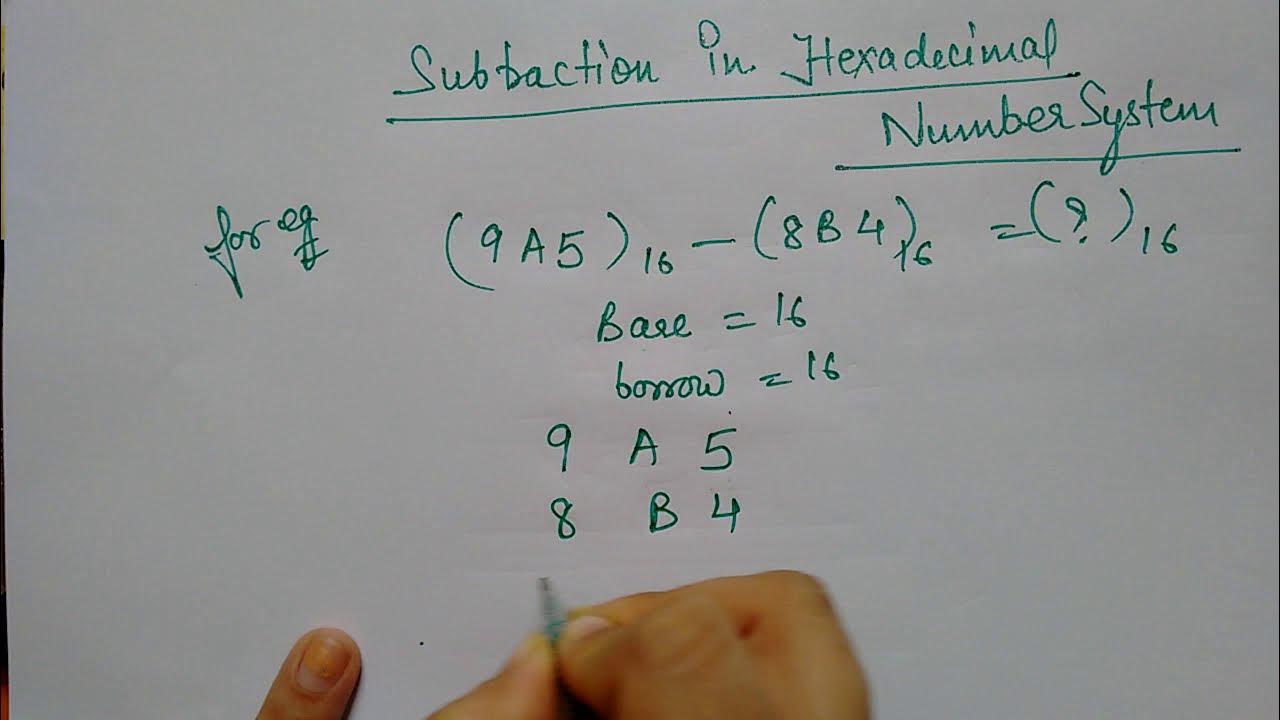 Subtaction in Hexadecimal
Number System
for eg (9A5)₁₆ – (8B4)₁₆ = (?)₁₆
Base = 16
borrow = 16
9 A 5
8 B 4